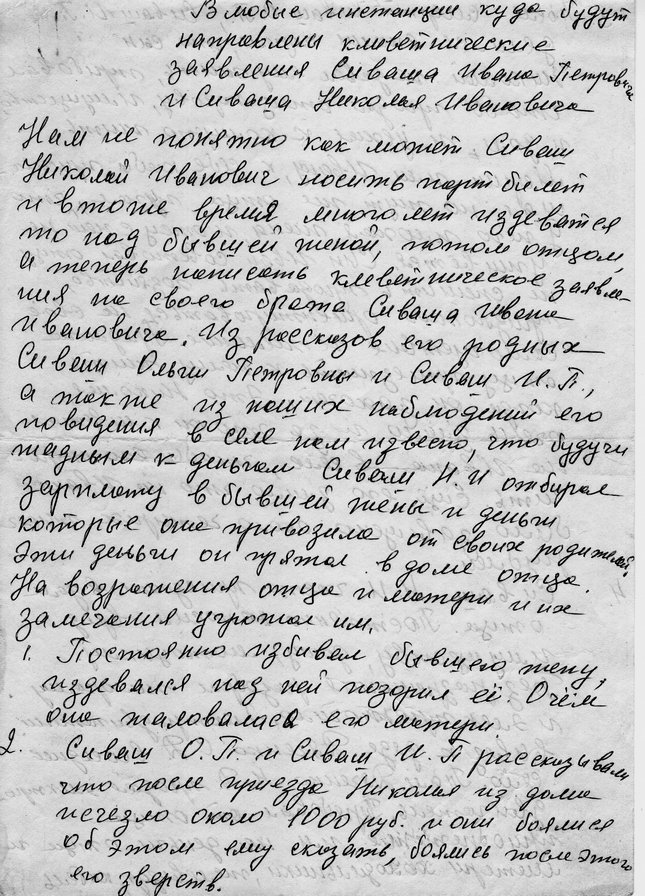 В любые инстанции куда будут
направлены клеветнические
заявления Сиваша Ивана Петровича
и Сиваша Николая Ивановича
Нам не понятно как может Сиваш
Николай Иванович носить партбилет
и втоже время много лет издеватся
то над бывшей женой, потом отцом,
а теперь написать клеветническое заявле-
ния на своего брата Сиваша Ивана
Ивановича. Из рассказов его родных
Сиваш Ольги Петровны и Сиваш И.П.,
а также из наших наблюдений его
повидения в селе нам извесно, что будучи
жадным к деньгам Сиваш Н.И отбирал
зарплату в бывшей жены и деньги
которые она привозила от своих родителей.
Эти деньги он прятал в доме отца.
На возражения отца и матери и их
замечания угрожал им.
1. Постоянно избивал бывшею жену,
издевался над ней позорил её. Очём
она жаловалась его матери.
2. Сиваш О.П. и Сиваш И.П рассказывали
что после приезда Николая из дома
исчезло около 1000 руб. и они боялися
об этом ему сказать, боялись после этого
его зверств.